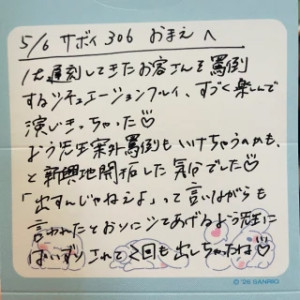 5/6 サボイ 306 おまえへ
1h遅刻してきたお客さんを罵倒
するシチュエーションプレイ、すっごく楽しんで
演じきっちゃった♡
よう先生案外罵倒もいけちゃうのかも、
と新興地開拓した気分でした♡
「出すんじゃねえよ」って言いながらも
言われたとおりにシてあげるよう先生に
ぱいずりされて2回も出しちゃったね♡
© '26 SANRIO